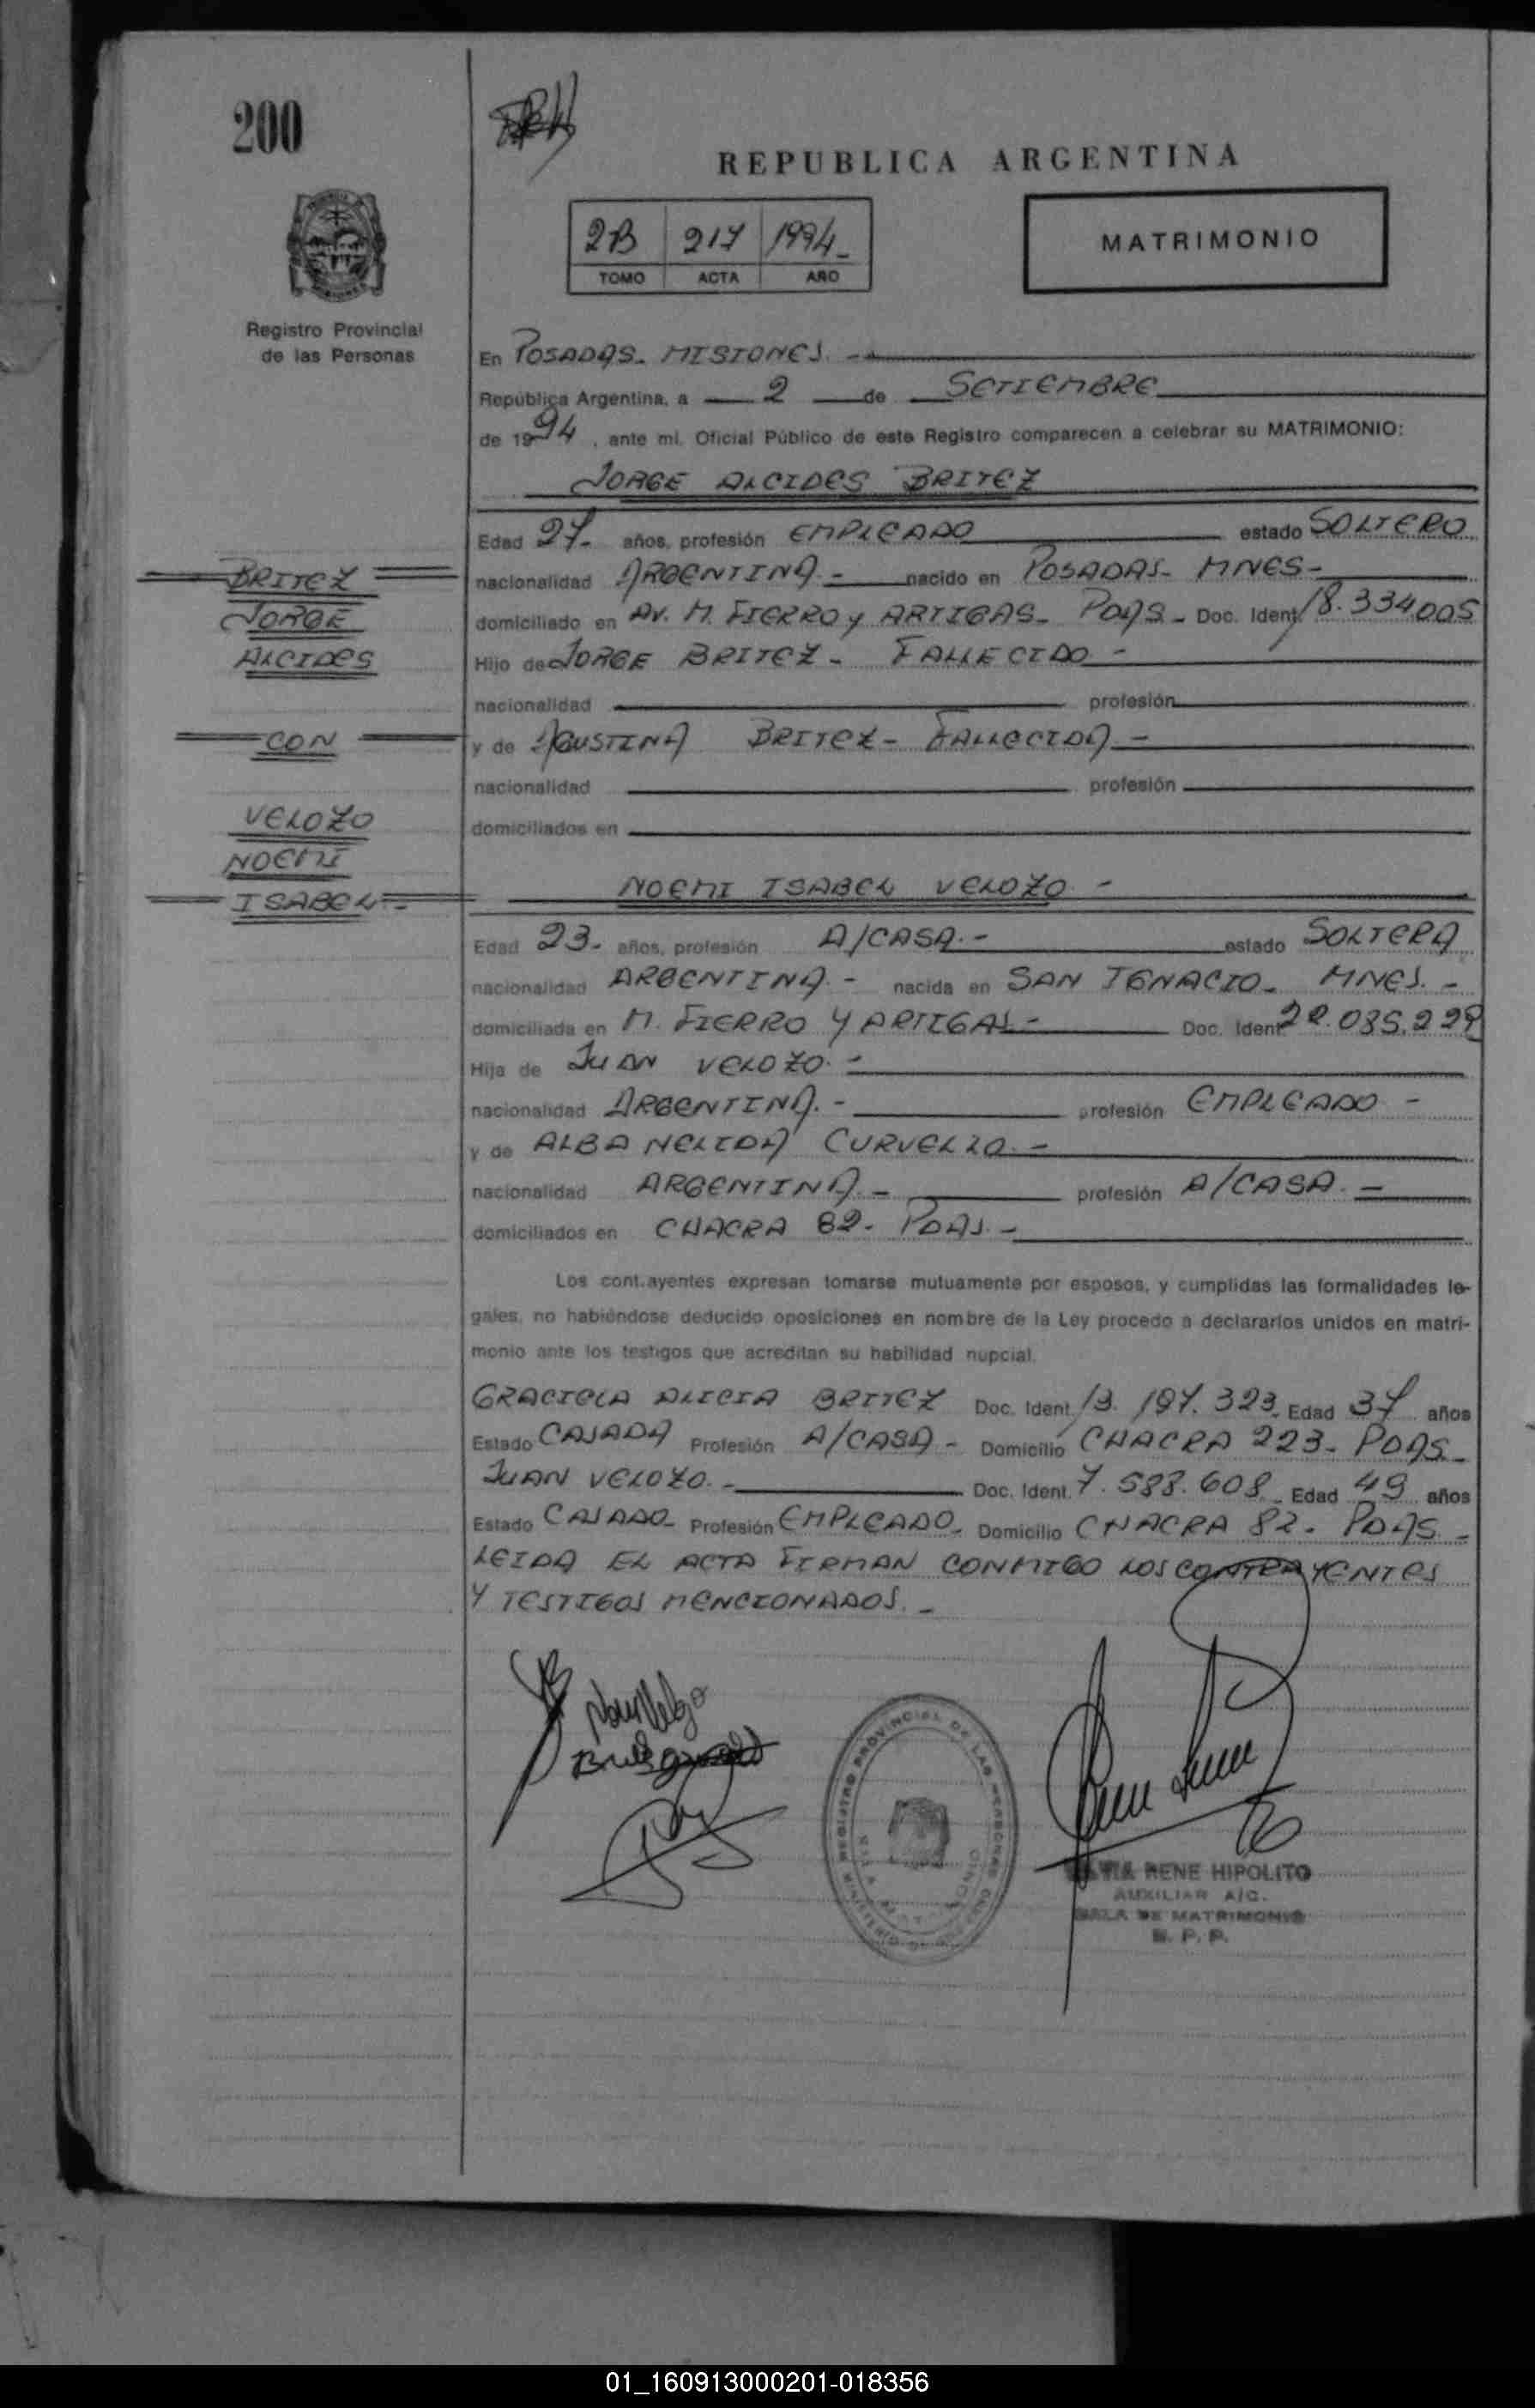 200
REPUBLICA ARGENTINA
2B 217 1994_
TOMO ACTA AÑO
MATRIMONIO
Registro Provincial
de las Personas
En POSADAS- MISIONES. -
República Argentina, a 2 de SETIEMBRE
de 1994, ante mi, Oficial Público de este Registro comparecen a celebrar su MATRIMONIO:
JORGE ALCIDES BRITEZ
Edad 27- años, profesión EMPLEADO estado SOLTERO
BRITEZ
nacionalidad ARGENTINA - nacido en POSADAS- MNES-
JORGE
domiciliado en AV. M. FIERRO y ARTIGAS- PDAS- Doc. Ident. 18.334005
ALCIDES
Hijo de JORGE BRITEZ - FALLECIDO -
nacionalidad profesión
CON
y de AGUSTINA BRITEZ- FALLECIDA -
nacionalidad profesión
VELOZO
domiciliados en
NOEMI
ISABEL -
NOEMI ISABEL VELOZO -
Edad 23- años, profesión A/CASA.- estado SOLTERA
nacionalidad ARGENTINA.- nacida en SAN IGNACIO- MNES.-
domiciliada en M. FIERRO Y ARTIGAS- Doc. Ident. 22.035.229
Hija de JUAN VELOZO.-
nacionalidad ARGENTINA.- profesión EMPLEADO -
y de ALBA NELIDA CURVELLO.-
nacionalidad ARGENTINA.- profesión A/CASA.-
domiciliados en CHACRA 82- PDAS.-
Los cont.ayentes expresan tomarse mutuamente por esposos, y cumplidas las formalidades le-
gales, no habiéndose deducido oposiciones en nombre de la Ley procedo a declararlos unidos en matri-
monio ante los testigos que acreditan su habilidad nupcial.
GRACIELA ALICIA BRITEZ Doc. Ident. 13.197.323. Edad 37 años
Estado CASADA Profesión A/CASA- Domicilio CHACRA 223- PDAS-
JUAN VELOZO.- Doc. Ident. 7.588.608 Edad 49 años
Estado CASADO- Profesión EMPLEADO- Domicilio CHACRA 82- PDAS-
LEIDA EL ACTA FIRMAN CONMIGO LOS CONTRAYENTES
Y TESTIGOS MENCIONADOS.-
REGISTRO PROVINCIAL DE LAS PERSONAS
RENE HIPOLITO
AUXILIAR A/C.
SALA DE MATRIMONIO
01_160913000201-018356